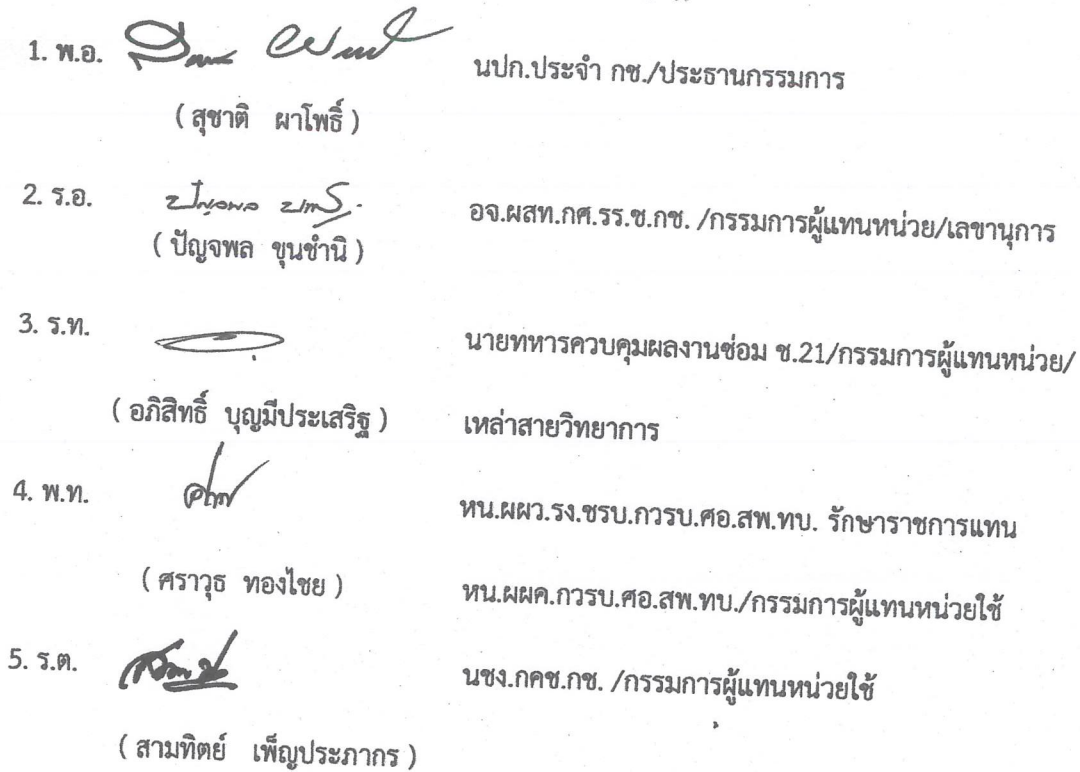 1. พ.อ. นปก.ประจำ กช./ประธานกรรมการ
( สุชาติ ผาโพธิ์ )
2. ร.อ. ปัญจพล อจ.ผสท.กศ.รร.ช.กช. /กรรมการผู้แทนหน่วย/เลขานุการ
( ปัญจพล ขุนชำนิ )
3. ร.ท. นายทหารควบคุมผลงานซ่อม ช.21/กรรมการผู้แทนหน่วย/
( อภิสิทธิ์ บุญมีประเสริฐ ) เหล่าสายวิทยาการ
4. พ.ท. หน.ผผว.รง.ซรบ.กวรบ.ศอ.สพ.ทบ. รักษาราชการแทน
( ศราวุธ ทองไชย ) หน.ผผค.กวรบ.ศอ.สพ.ทบ./กรรมการผู้แทนหน่วยใช้
5. ร.ต. นชง.กคช.กช. /กรรมการผู้แทนหน่วยใช้
( สามทิตย์ เพ็ญประภากร )